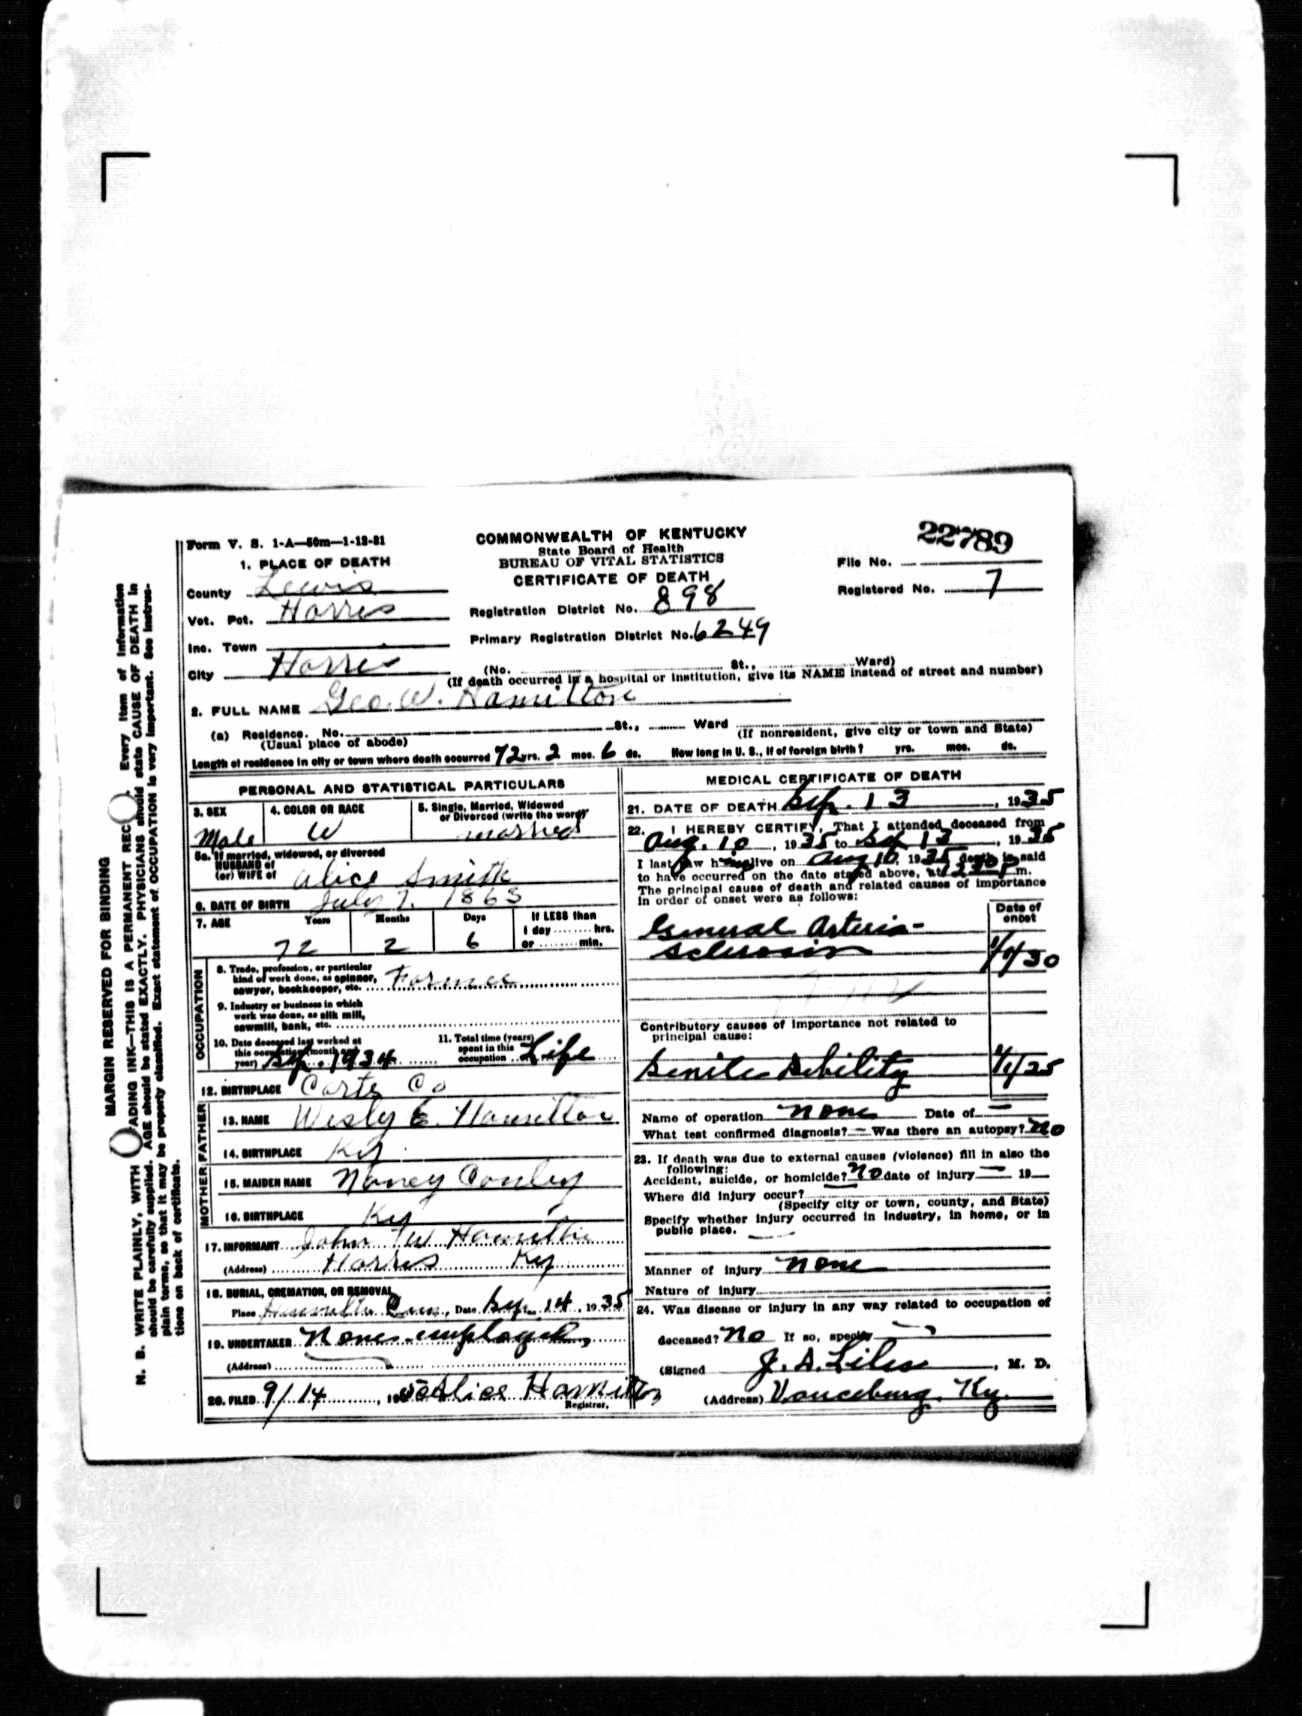 22789
Form V. S. 1-A—50m—1-12-31
COMMONWEALTH OF KENTUCKY
State Board of Health
BUREAU OF VITAL STATISTICS
CERTIFICATE OF DEATH
File No.
Registered No. 7
1. PLACE OF DEATH
County Lewis
Vot. Pct. Harris
Inc. Town
City Harris
Registration District No. 898
Primary Registration District No. 6249
(No. St., Ward)
(If death occurred in a hospital or institution, give its NAME instead of street and number)
2. FULL NAME Geo. W. Hamilton
(a) Residence. No. St., Ward
(Usual place of abode) (If nonresident, give city or town and State)
Length of residence in city or town where death occurred 72 yrs. 2 mos. 6 ds. How long in U. S., if of foreign birth? yrs. mos. ds.
PERSONAL AND STATISTICAL PARTICULARS
3. SEX
Male
4. COLOR OR RACE
W
5. Single, Married, Widowed
or Divorced (write the word)
married
5a. If married, widowed, or divorced
HUSBAND of
(or) WIFE of Alice Smith
6. DATE OF BIRTH July 7. 1863
7. AGE Years Months Days If LESS than
1 day ........ hrs.
72 2 6 or ........ min.
OCCUPATION
8. Trade, profession, or particular
kind of work done, as spinner,
sawyer, bookkeeper, etc. Farmer
9. Industry or business in which
work was done, as silk mill,
sawmill, bank, etc.
10. Date deceased last worked at
this occupation (month and
year) Sep. 1934
11. Total time (years)
spent in this
occupation Life
12. BIRTHPLACE Carter Co
FATHER
13. NAME Wesly E. Hamilton
14. BIRTHPLACE Ky.
MOTHER
15. MAIDEN NAME Nancy Conley
16. BIRTHPLACE Ky
17. INFORMANT John W Hamilton
(Address) Harris Ky
18. BURIAL, CREMATION, OR REMOVAL
Place Hamilton Cem., Date Sep. 14, 1935
19. UNDERTAKER None employed,
(Address)
20. FILED 9/14, 1935 Alice Hamilton
Registrar.
MEDICAL CERTIFICATE OF DEATH
21. DATE OF DEATH Sep. 13, 1935
22. I HEREBY CERTIFY, That I attended deceased from
Aug. 10, 1935 to Sep 13, 1935
I last saw h alive on Aug 10, 1935 death is said
to have occurred on the date stated above, at 12:30 P m.
The principal cause of death and related causes of importance
in order of onset were as follows:
Date of
onset
General Arterio-
sclerosis 1/1/30
Contributory causes of importance not related to
principal cause:
Senile Debility 1/1/25
Name of operation none Date of —
What test confirmed diagnosis? — Was there an autopsy? No
23. If death was due to external causes (violence) fill in also the
following:
Accident, suicide, or homicide? No date of injury — 19—
Where did injury occur?
(Specify city or town, county, and State)
Specify whether injury occurred in industry, in home, or in
public place. —
Manner of injury none
Nature of injury
24. Was disease or injury in any way related to occupation of
deceased? No If so, specify —
(Signed J. A. Liles, M. D.
(Address) Vanceburg. Ky.
MARGIN RESERVED FOR BINDING
N. B. WRITE PLAINLY, WITH ADING INK—THIS IS A PERMANENT REC Every item of information
should be carefully supplied. AGE should be stated EXACTLY. PHYSICIANS should state CAUSE OF DEATH in
plain terms, so that it may be properly classified. Exact statement of OCCUPATION is very important. See instruc-
tions on back of certificate.